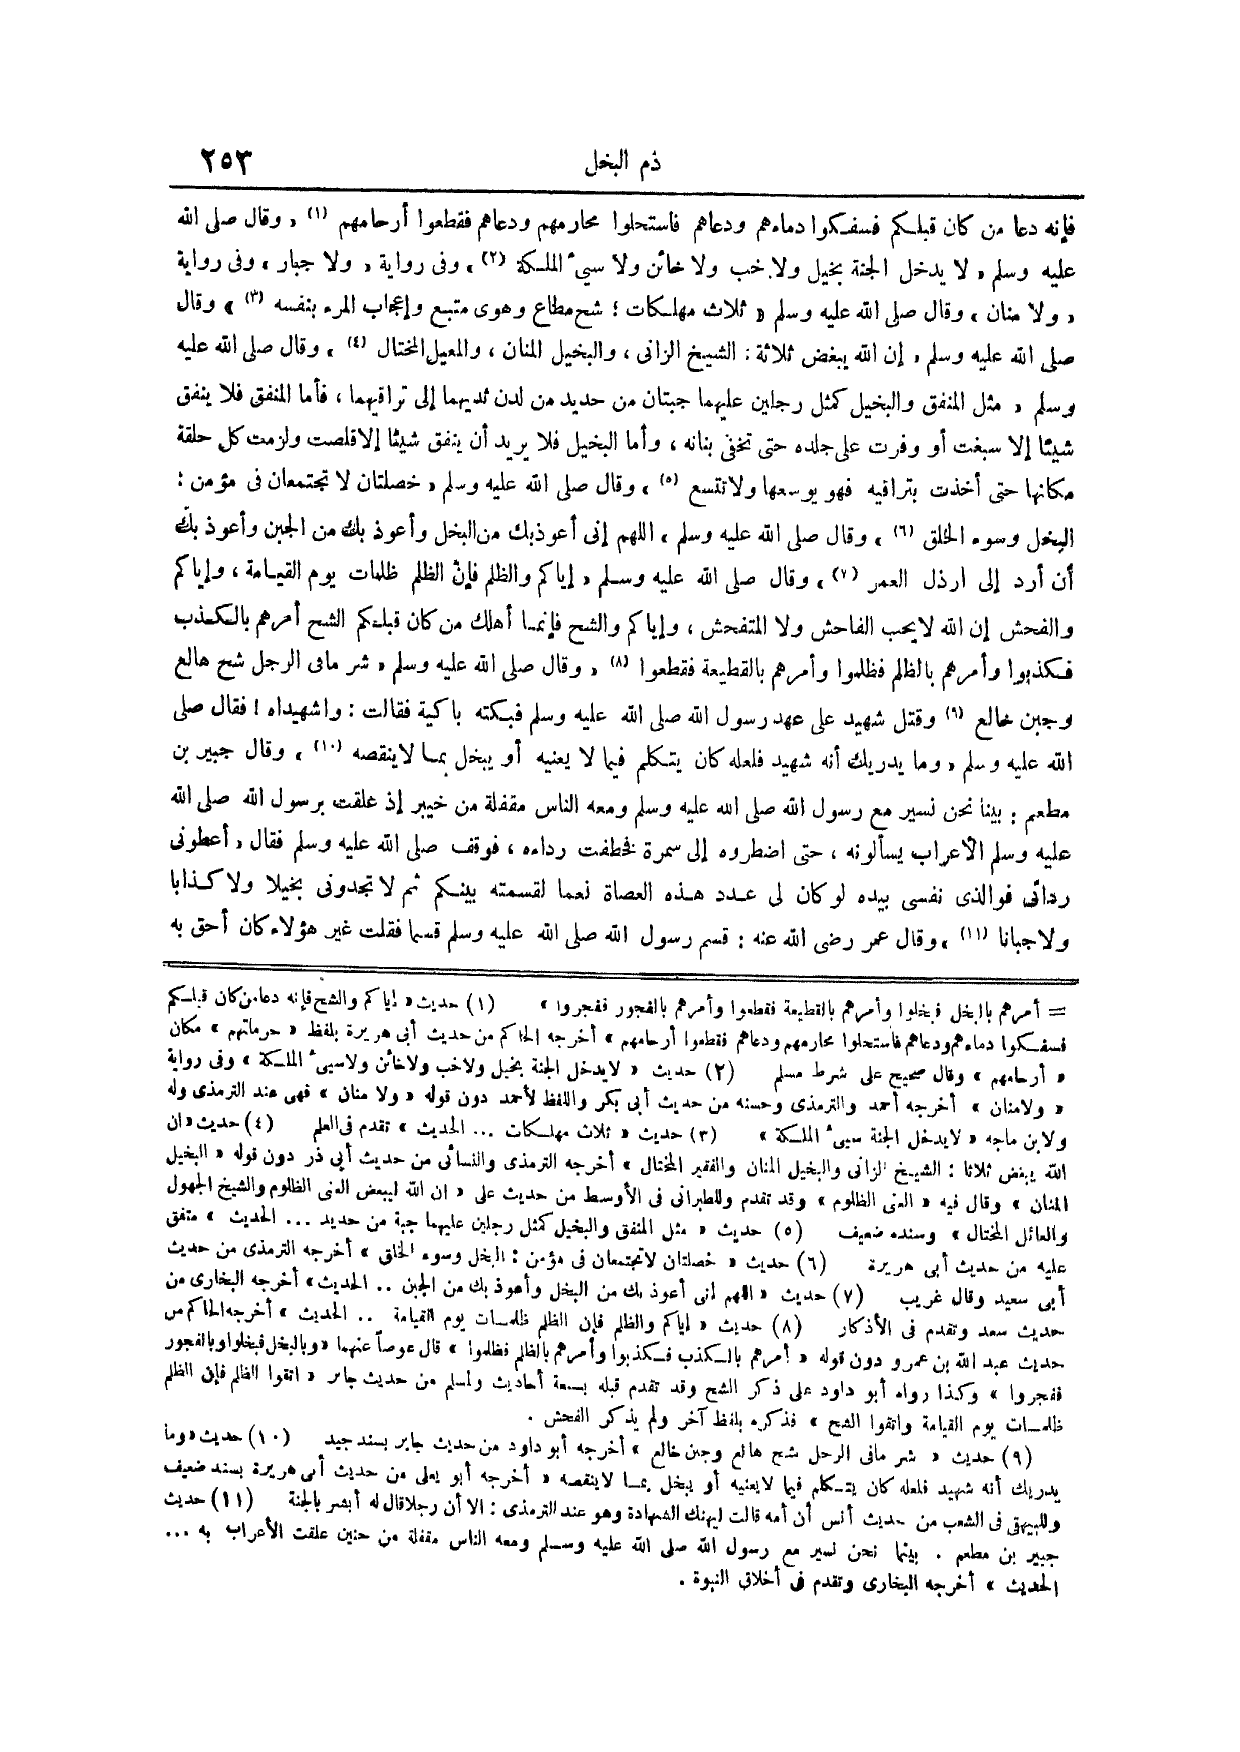 ذم البخل ٢٥٣
فإنه دعا من كان قبلكم فسفكوا دماءهم ودعاهم فاستحلوا محارمهم ودعاهم فقطعوا أرحامهم (١) » وقال صلى الله
عليه وسلم « لا يدخل الجنة بخيل ولا خب ولا خائن ولا سيئ الملكة (٢) » وفى رواية « ولا جبار » وفى رواية
« ولا منان » وقال صلى الله عليه وسلم « ثلاث مهلكات : شح مطاع وهوى متبع وإعجاب المرء بنفسه (٣) » وقال
صلى الله عليه وسلم « إن الله يبغض ثلاثة : الشيخ الزانى ، والبخيل المنان ، والمعيل المختال (٤) » وقال صلى الله عليه
وسلم « مثل المنفق والبخيل كمثل رجلين عليهما جبتان من حديد من لدن ثديهما إلى تراقيهما ، فأما المنفق فلا ينفق
شيئا إلا سبغت أو وفرت على جلده حتى تخفى بنانه ، وأما البخيل فلا يريد أن ينفق شيئا إلا قلصت ولزمت كل حلقة
مكانها حتى أخذت بتراقيه فهو يوسعها ولا تتسع (٥) » وقال صلى الله عليه وسلم « خصلتان لا تجتمعان فى مؤمن :
البخل وسوء الخلق (٦) » وقال صلى الله عليه وسلم « اللهم إنى أعوذ بك من البخل وأعوذ بك من الجبن وأعوذ بك
أن أرد إلى ارذل العمر (٧) » وقال صلى الله عليه وسلم « إياكم والظلم فإن الظلم ظلمات يوم القيامة ، وإياكم
والفحش إن الله لا يحب الفاحش ولا المتفحش ، وإياكم والشح فإنما أهلك من كان قبلكم الشح أمرهم بالكذب
فكذبوا وأمرهم بالظلم فظلموا وأمرهم بالقطيعة فقطعوا (٨) » وقال صلى الله عليه وسلم « شر مافى الرجل شح هالع
وجبن خالع (٩) وقتل شهيد على عهد رسول الله صلى الله عليه وسلم فبكته باكية فقالت : واشهيداه ! فقال صلى
الله عليه وسلم « وما يدريك أنه شهيد فلعله كان يتكلم فيما لا يعنيه أو يبخل بما لا ينقصه (١٠) » وقال جبير بن
مطعم : بينا نحن نسير مع رسول الله صلى الله عليه وسلم ومعه الناس مقفلة من خيبر إذ علقت برسول الله صلى الله
عليه وسلم الأعراب يسألونه ، حتى اضطروه إلى سمرة فخطفت رداءه ، فوقف صلى الله عليه وسلم فقال « أعطونى
ردائى فوالذى نفسى بيده لو كان لى عدد هذه العصاة نعما لقسمته بينكم ثم لا تجدونى بخيلا ولا كذابا
ولا جبانا (١١) » وقال عمر رضى الله عنه : قسم رسول الله صلى الله عليه وسلم قسما فقلت غير هؤلاء كان أحق به
= أمرهم بالبخل فبخلوا وأمرهم بالقطيعة فقطعوا وأمرهم بالفجور ففجروا » (١) حديث « إياكم والشح فإنه دعا من كان قبلكم
فسفكوا دماءهم ودعاهم فاستحلوا محارمهم ودعاهم فقطعوا أرحامهم » أخرجه الحاكم من حديث أبى هريرة بلفظ « حرماتهم » مكان
« أرحامهم » وقال صحيح على شرط مسلم (٢) حديث « لايدخل الجنة بخيل ولاخب ولاخائن ولاسيئ الملكة » وفى رواية
« ولامنان » أخرجه أحمد والترمذى وحسنه من حديث أبى بكر واللفظ لأحمد دون قوله « ولا منان » فهى عند الترمذى وله
ولابن ماجه « لايدخل الجنة سيئ الملكة » (٣) حديث « ثلاث مهلكات ... الحديث » تقدم فى العلم (٤) حديث « ان
الله يبغض ثلاثا : الشيخ الزانى والبخيل المنان والفقير المختال » أخرجه الترمذى والنسائى من حديث أبى ذر دون قوله « البخيل
المنان » وقال فيه « الغنى الظلوم » وقد تقدم وللطبرانى فى الأوسط من حديث على « ان الله ليبغض الغنى الظلوم والشيخ الجهول
والعائل المختال » وسنده ضعيف (٥) حديث « مثل المنفق والبخيل كمثل رجلين عليهما جبة من حديد ... الحديث » متفق
عليه من حديث أبى هريرة (٦) حديث « خصلتان لاتجتمعان فى مؤمن : البخل وسوء الخلق » أخرجه الترمذى من حديث
أبى سعيد وقال غريب (٧) حديث « اللهم انى أعوذ بك من البخل وأعوذ بك من الجبن .. الحديث » أخرجه البخارى من
حديث سعد وتقدم فى الأذكار (٨) حديث « اياكم والظلم فإن الظلم ظلمات يوم القيامة .. الحديث » أخرجه الحاكم من
حديث عبد الله بن عمرو دون قوله « أمرهم بالكذب فكذبوا وأمرهم بالظلم فظلموا » قال عوضاً عنهما « وبالبخل فبخلوا وبالفجور
ففجروا » وكذا رواه أبو داود على ذكر الشح وقد تقدم قبله بسبعة أحاديث ولمسلم من حديث جابر « اتقوا الظلم فإن الظلم
ظلمات يوم القيامة واتقوا الشح » فذكره بلفظ آخر ولم يذكر الفحش .
(٩) حديث « شر مافى الرجل شح هالع وجبن خالع » أخرجه أبو داود من حديث جابر بسند جيد (١٠) حديث « وما
يدريك أنه شهيد فلعله كان يتكلم فيما لايعنيه أو يبخل بما لاينقصه » أخرجه أبو يعلى من حديث أبى هريرة بسند ضعيف
وللبيهقى فى الشعب من حديث أنس أن أمه قالت ليهنك الشهادة وهو عند الترمذى : الا أن رجلا قال له أبشر بالجنة (١١) حديث
جبير بن مطعم . بينما نحن نسير مع رسول الله صلى الله عليه وسلم ومعه الناس مقفلة من حنين علقت الأعراب به ...
الحديث » أخرجه البخارى وتقدم فى أخلاق النبوة .